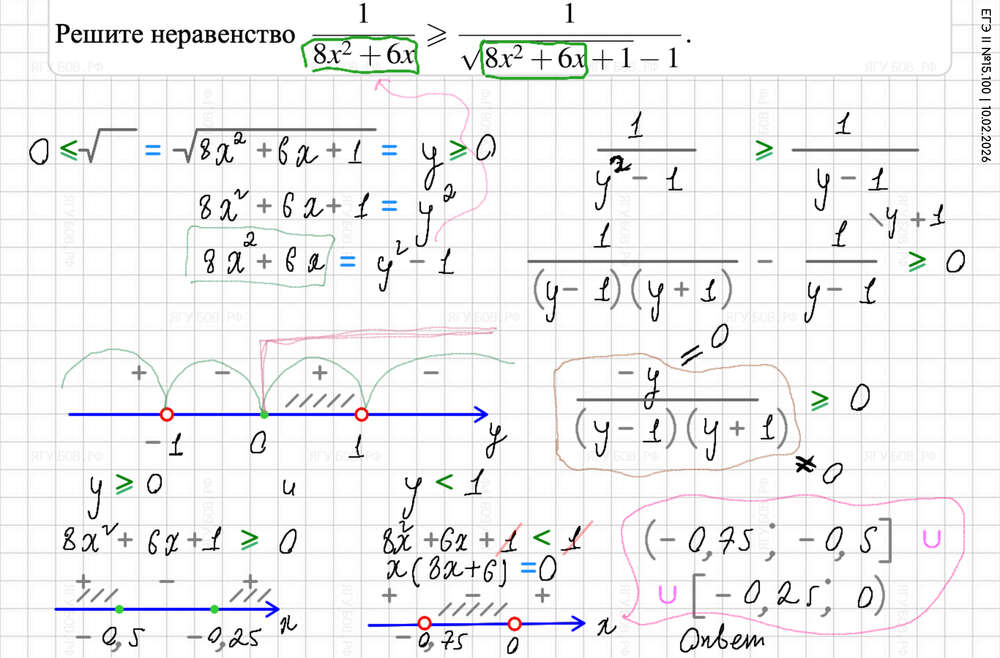 Решите неравенство 1/(8x² + 6x) ⩾ 1/(√(8x² + 6x + 1) − 1).
ЕГЭ II №15.100 | 10.02.2026
0 ≤ √ = √(8x² + 6x + 1) = y ≥ 0
8x² + 6x + 1 = y²
8x² + 6x = y² − 1
1/(y² − 1) ≥ 1/(y − 1)
1/((y − 1)(y + 1)) − 1/(y − 1) \y + 1 ≥ 0
−y/((y − 1)(y + 1)) ≥ 0
= 0
≠ 0
+ − + −
−1 0 1 y
y ≥ 0 и y < 1
8x² + 6x + 1 ≥ 0
+ − +
−0,5 −0,25 x
8x² + 6x + 1 < 1
x(8x + 6) = 0
+ − +
−0,75 0 x
(−0,75; −0,5] ∪
∪ [−0,25; 0)
Ответ
ЯГУБОВ.РФ